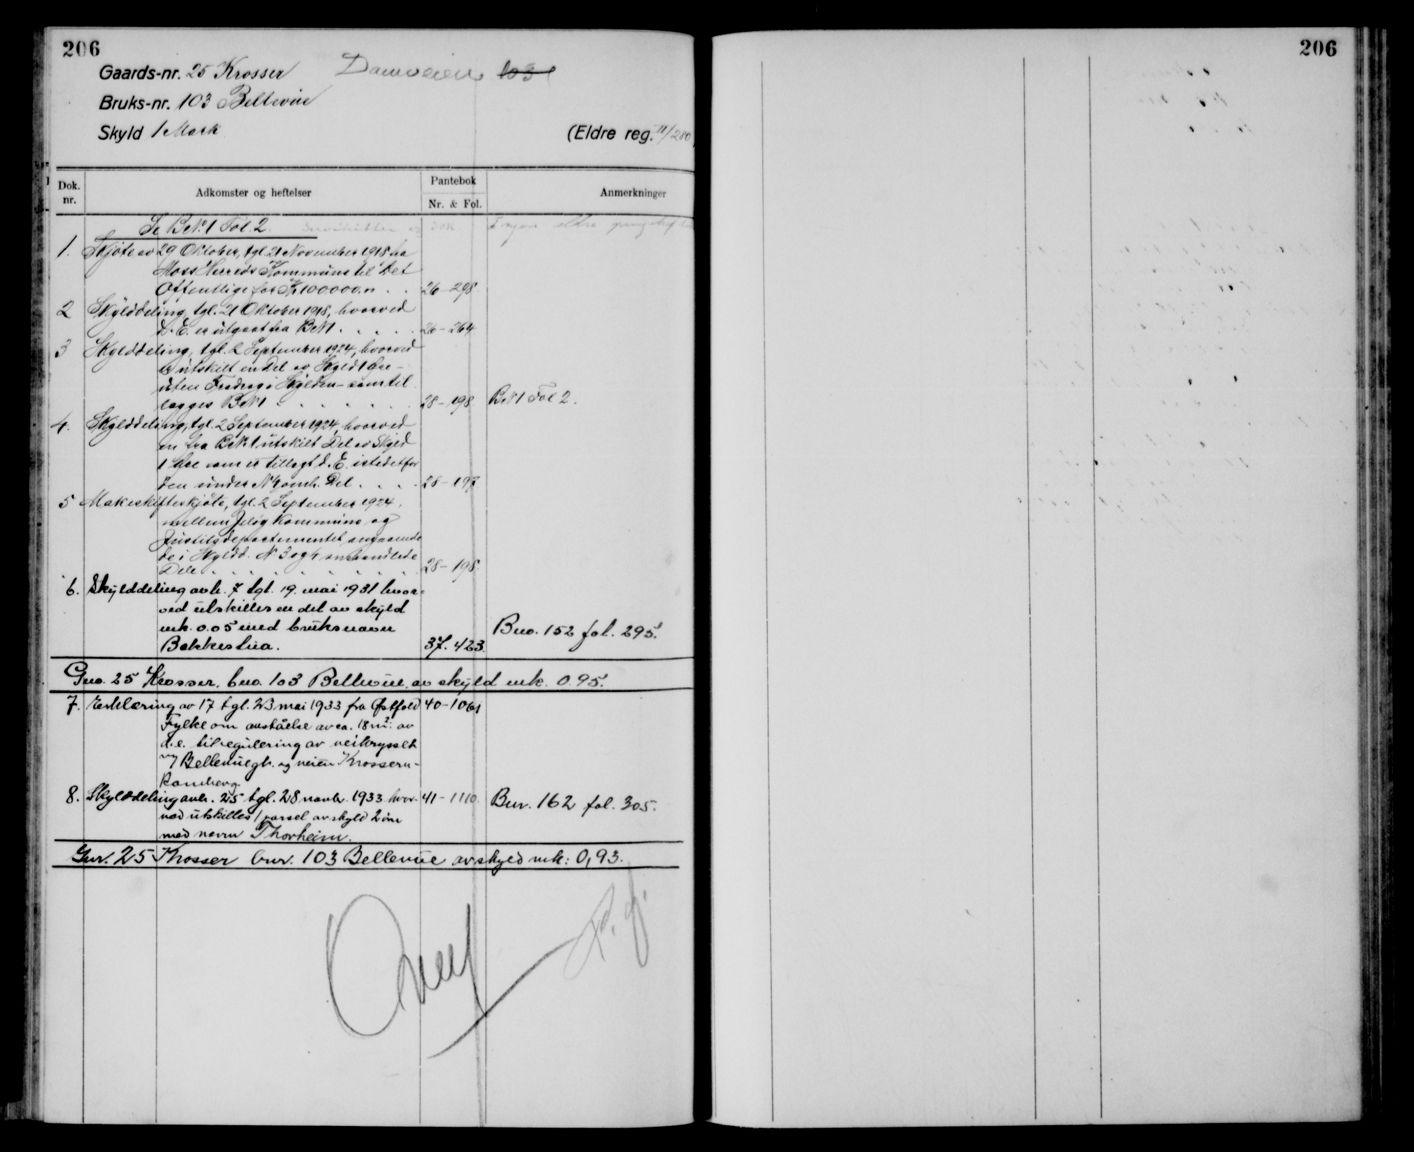 206
Gaards-nr. 25 Krosser Damveien 103
Bruks-nr. 103 Bellevue
Skyld 1 Mark (Eldre reg. II/280)
Dok. nr. Adkomster og heftelser Pantebok Nr. & Fol. Anmerkninger
Se BNo 1 Fol. 2.
1. Skjøte av 29 Oktober, tgl. 21 November 1918 fra
Moss Herreds Kommune til Det
Offentlige for Kr 100000.n . . 26 - 298
2 Skylddeling, tgl. 21 Oktober 1918, hvorved
d. E. er utgaat fra BNo 1 . . . . . 26 - 264
3 Skylddeling, tgl. 2 September 1924, hvorved
er utskilt en Del av Skyld 1 Øre -
som til
lægges BNo 1 . . . . . . 28 - 198 BNo 1 Fol 2.
4. Skylddeling, tgl. 2 September 1924, hvorved
en fra BNo 1 utskilt Del av Skyld
1 Øre som er tillagt d. E. istedetfor
den under No 3 omh. Del . . . . 28 - 197
5 Makeskifteskjøte, tgl. 2 September 1924.
mellem Jeløy Kommune og
Justitsdepartementet angaaende
de i Skyldd. No 3 og 4 omhandlede
Dele . . . . . . . . 28 - 198
6. Skylddeling avh. 7 tgl. 19. mai 1931 hvor-
ved utskilles en del av skyld
mk. 0.05 med bruksnavn
Bakkestua. 37. 423. Bno. 152 fol. 295.
Gno. 25 Krosser, bno. 103 Bellevue, av skyld mk. 0.95.
7. Erklæring av 17 tgl. 23 mai 1933 fra Østfold 40-1061
Fylke om avståelse av ca. 18 m²: av
d.e. til regulering av veikrysset
Bellevuegt. og veien Krossern-
Ramberg
8. Skylddeling avh. 25 tgl. 28 novbr. 1933 hvor- 41 - 1110. Bnr. 162 fol. 305.
ved utskilles 1 parsel av skyld 2 øre
med navn Thorheim.
Gnr. 25 Krosser bnr. 103 Bellevue av skyld mk: 0,93.
206